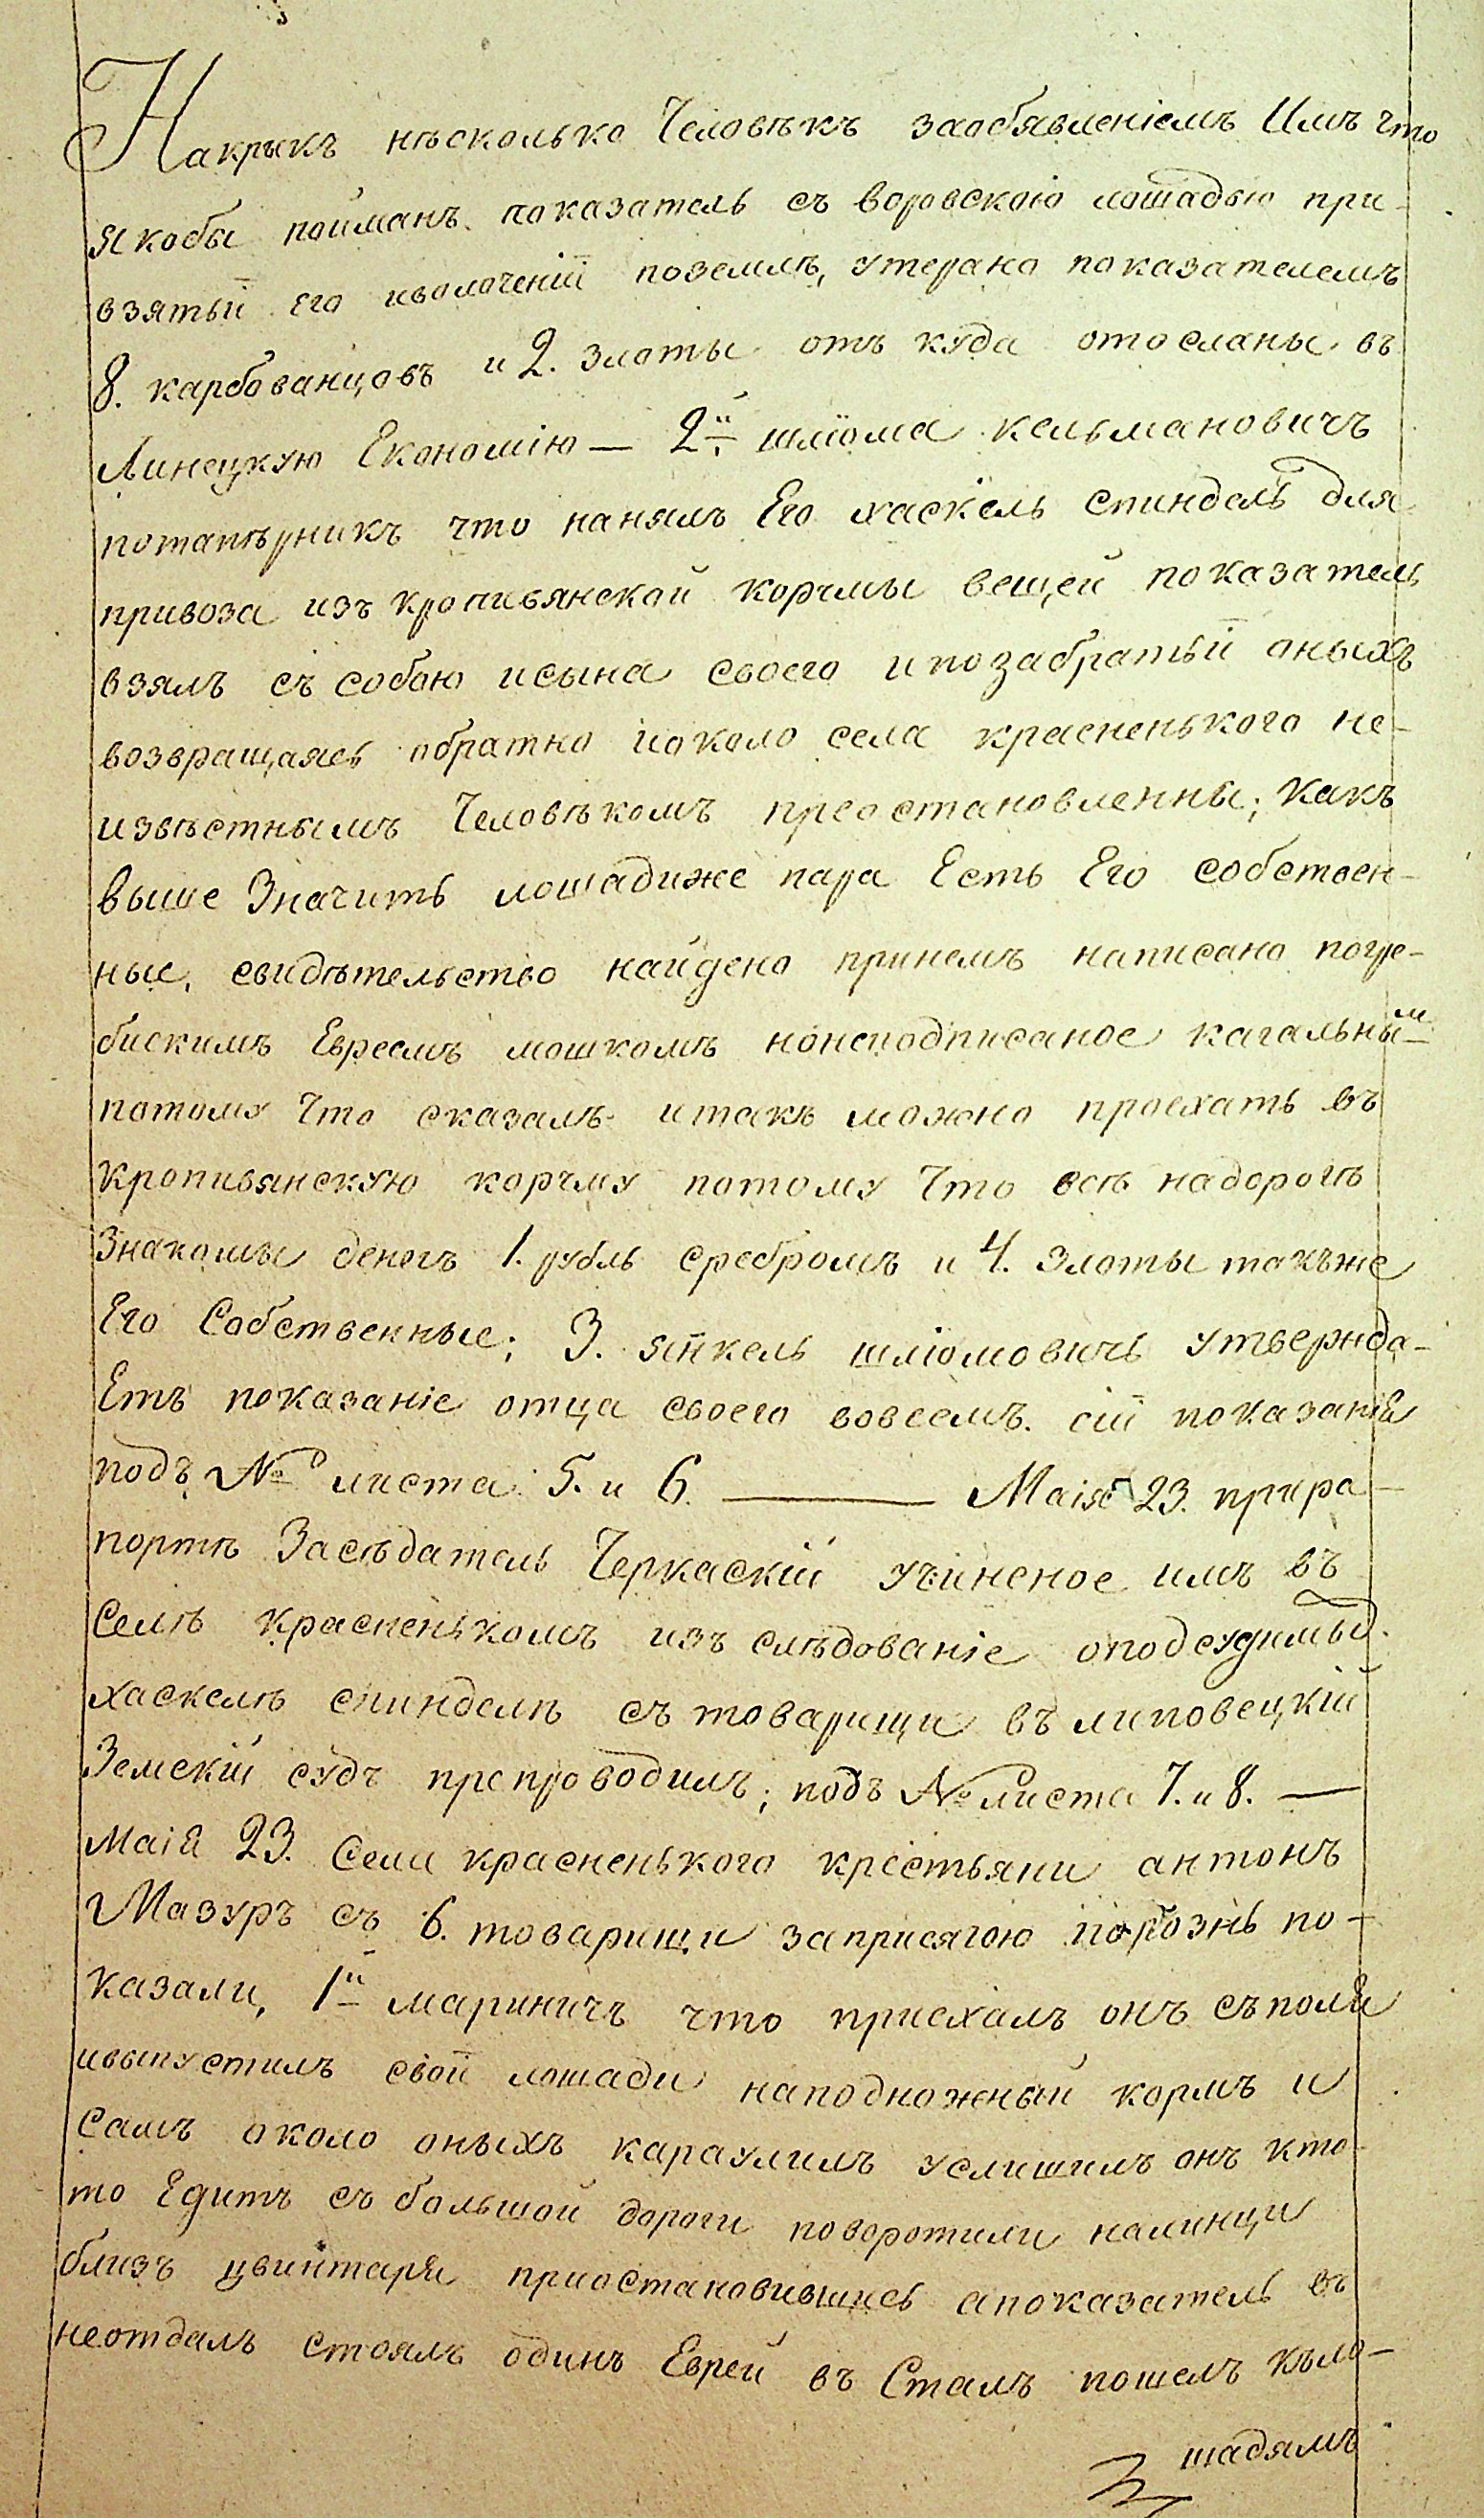 Накрыкъ нѣсколько Человѣкъ заобявленіемъ Имъ что
якобы пойманъ показатель съ воровскою лошадью при
взятьи его иволоченіи поземлѣ, утеряно показателемъ
8. карбованцовъ и 2. злоты отъ куда отосланы въ
Линецкую Економію — 2й шліома кельмановичъ
потапѣрникъ что нанялъ Его хаскель спиндель для
привоза изъ кропивянской корчмы вещей показатель
взялъ съ собою исына своего ипозабратьи оныхъ
возвращаясь обратно іоколо села красненького не-
извѣстнымъ Человѣкомъ преостановленны; какъ
выше Значить лошадиже пара Есть Его собствен-
ные, свидѣтельство найдено принемъ написано погре-
бискимъ Евреемъ мошкомъ нонеподписаное кагальным
потому Что сказалъ итакъ можно проехать въ
кропивянскую корчму потому Что всѣ надорогѣ
Знакомы денегъ 1. рубль сребромъ и 4. Злоты такъже
Его Собственные; 3. янкель шліомовичь утвержда-
Етъ показаніе отца своего вовсемъ. сіи показанія
подъ № листа 5. и 6. — Маія 23. прира-
портѣ Засѣдатель Черкаскій учиненое имъ въ
Селѣ красненькомъ изъ слѣдованіе оподсудимых
хаскелѣ спинделѣ съ товарищи въ липовецкій
Земскій судъ препроводилъ; подъ № листа 7. и 8. —
Маія 23. Села красненького крестьяни антонъ
Мазуръ съ 6. товарищи заприсягою порознь по-
казали, 1й мариничъ что приехалъ онъ съполя
ивыпустилъ свои лошади наподножный кормъ и
самъ около оныхъ караулилъ услишилъ онъ кто-
то Едитъ съ большой дороги поворотили налинци
близъ цвинтаря приостановившись апоказатель въ
неотдалъ стоялъ одинъ Еврей въ Сталъ пошелъ къло-
шадямъ